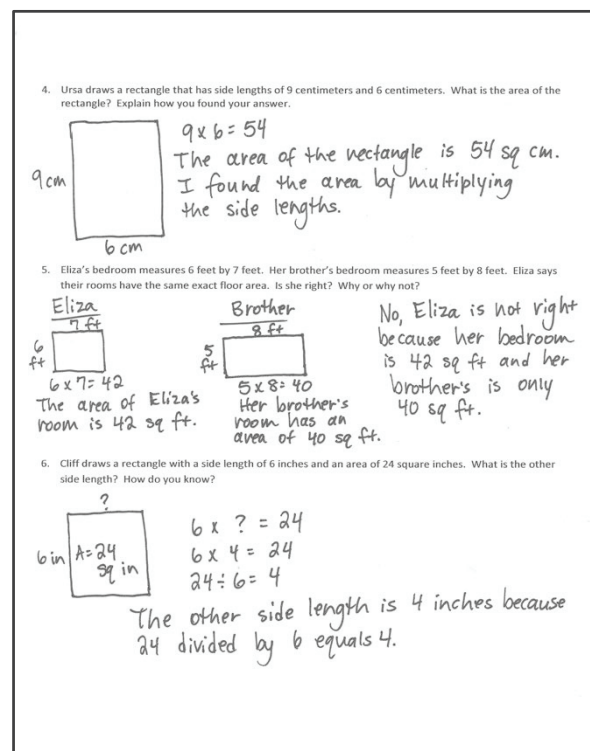 4. Ursa draws a rectangle that has side lengths of 9 centimeters and 6 centimeters. What is the area of the
rectangle? Explain how you found your answer.
9 x 6 = 54
The area of the rectangle is 54 sq cm.
9 cm
I found the area by multiplying
the side lengths.
6 cm
5. Eliza's bedroom measures 6 feet by 7 feet. Her brother's bedroom measures 5 feet by 8 feet. Eliza says
their rooms have the same exact floor area. Is she right? Why or why not?
Eliza
7 ft
6
ft
6 x 7 = 42
The area of Eliza's
room is 42 sq ft.
Brother
8 ft
5
ft
5 x 8 = 40
Her brother's
room has an
area of 40 sq ft.
No, Eliza is not right
because her bedroom
is 42 sq ft and her
brother's is only
40 sq ft.
6. Cliff draws a rectangle with a side length of 6 inches and an area of 24 square inches. What is the other
side length? How do you know?
?
6 in
A= 24
sq in
6 x ? = 24
6 x 4 = 24
24 ÷ 6 = 4
The other side length is 4 inches because
24 divided by 6 equals 4.